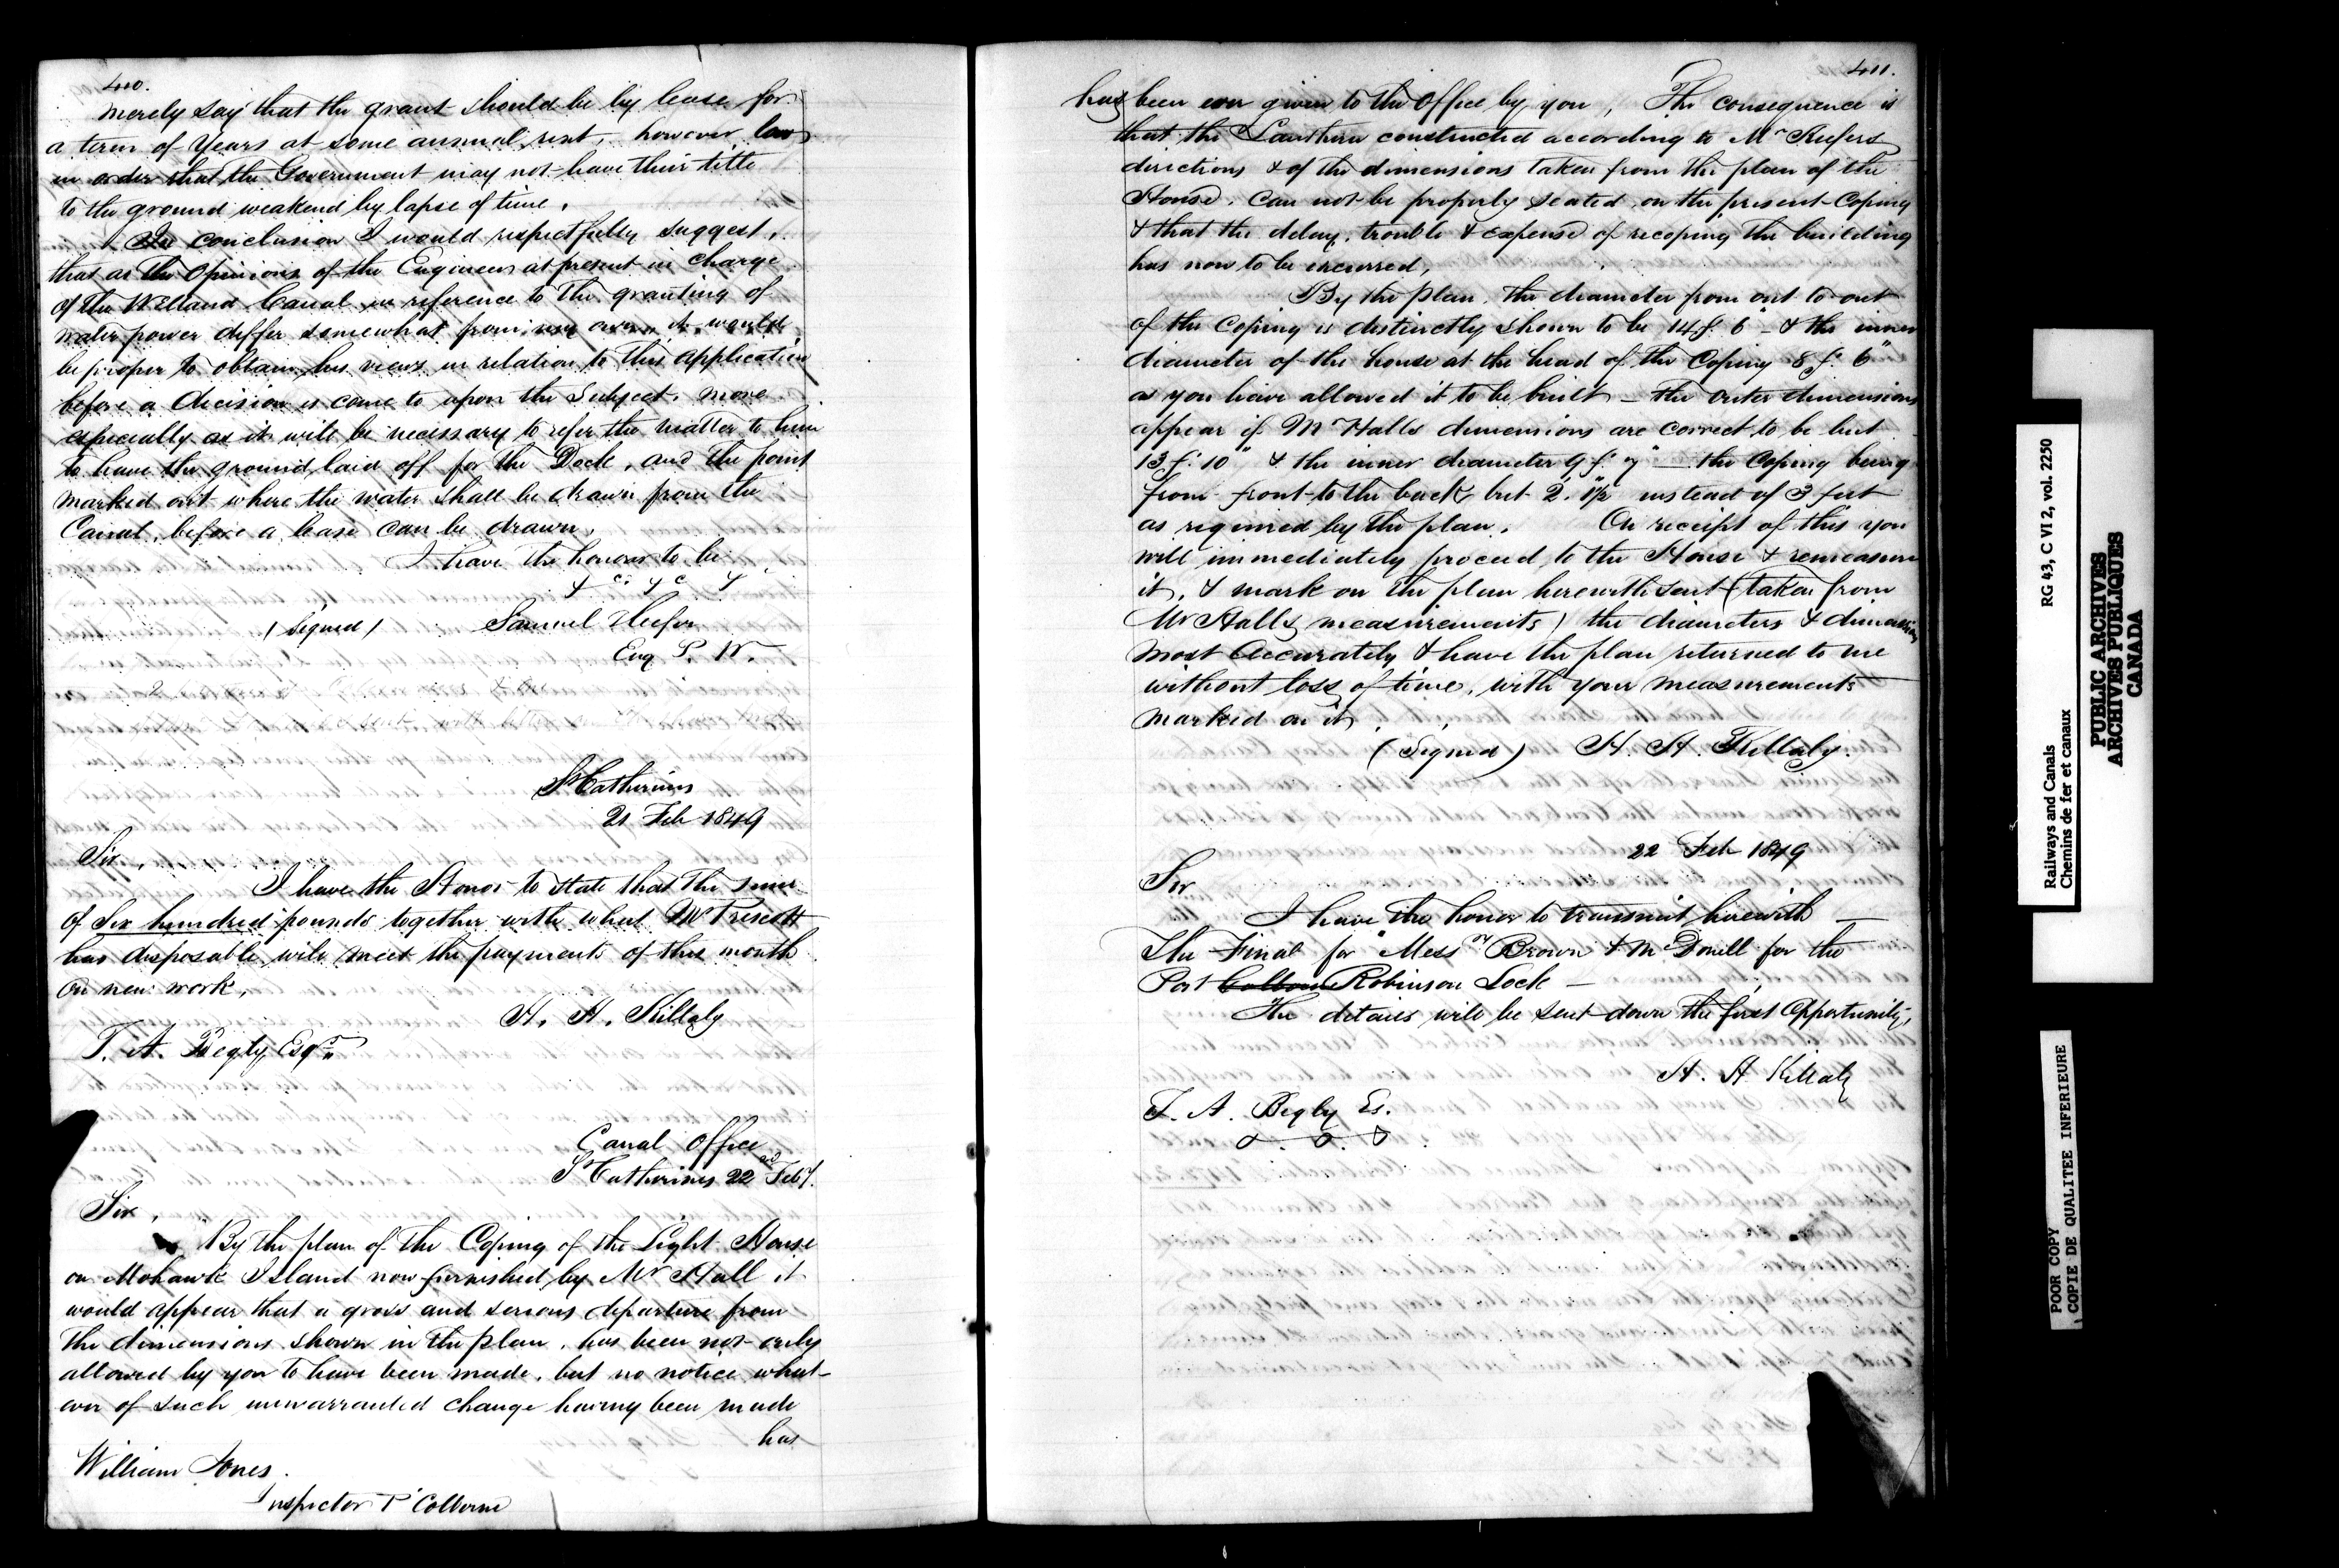 410.
merely say that the grant should be by lease for
a term of Years at some annual rent, however low
in order that the Government may not have their title
to the ground weakend by lapse of time.
In conclusion I would respectfully suggest,
that as the Opinions of the Engineer at present in charge
of the Welland Canal in reference to the granting of
water power differ somewhat from my own, it would
be proper to obtain his views in relation to this application
before a decision is come to upon the Subject. more
especially as it will be necessary to refer the matter to him
to have the ground laid off for the Dock, and the point
marked out where the water shall be drawn from the
Canal, before a lease can be drawn.
I have the honour to be
&c &c &
(Signed) Samuel Keefer
Eng P. W.
St Catherines
21 Feb 1849
Sir,
I have the Honor to state that the sum
of Six hundred pounds together with what Mr Prescott
has disposable will meet the payments of this month
on new work.
H. H. Killaly
T. A. Begly Esqr
Canal Office
St Catherines 22nd Feby.
Sir,
By the plan of the Coping of the Light House
on Mohawk Island now furnished by Mr Hall it
would appear that a gross and serious departure from
the dimensions shown in the plan, has been not only
allowed by you to have been made, but no notice what-
ever of such unwarranted change having been made
has
William Jones.
Inspector Pt Colborne
411.
has been ever given to the Office by you, The consequence is
that the Lanthern constructed according to Mr Keefers
directions & of the dimensions taken from the plan of the
House, can not be properly seated on the present Coping
& that the delay, trouble & expense of recoping the building
has now to be incurred,
By the plan, the diameter from out to out
of the Coping is distinctly shown to be 14f. 6" - & the inner
diameter of the house at the head of the Coping 8f. 6"
as you have allowed it to be built - the outer dimensions
appear if Mr Halls dimensions are correct to be but
13f. 10" & the inner diameter 9f. 7" - the Coping being
from front to the back but 2'. 1½" instead of 3 feet
as required by the plan. On receipt of this you
will immediately proceed to the House & remeasure
it, & mark on the plan herewith sent (taken from
Mr Halls measurements) the diameters & dimensions
most Accurately & have the plan returned to me
without loss of time, with your measurements
marked on it.
(Signed) H. H. Killaly.
22 Feb 1849
Sir
I have the honor to transmit herewith -
The Final for Messrs Brown & McDonell for the
Port Colborne Robinson Lock -
The details will be sent down the first Opportunity,
H. H Killaly
T. A. Begly Es.
&. &. &
Railways and Canals RG 43, C VI 2, vol. 2250
Chemins de fer et canaux
PUBLIC ARCHIVES
ARCHIVES PUBLIQUES
CANADA
POOR COPY
COPIE DE QUALITEE INFERIEURE